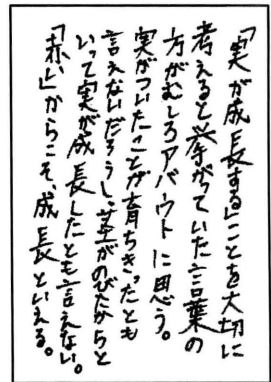 「実が成長する」ことを大切に
考えると挙がっていた言葉の
方がむしろアバウトに思う。
実がついたことが育ちきったとも
言えないだろうし、茎がのびたからと
いって実が成長したとも言えない。
「赤い」からこそ、成長といえる。